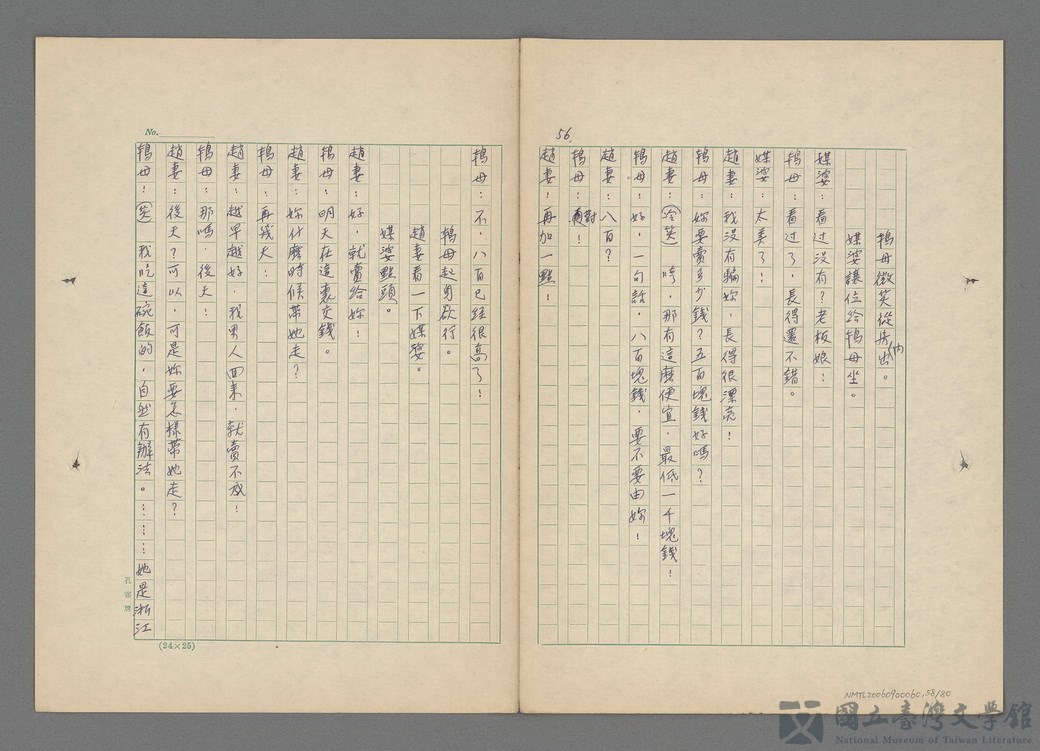 56.
鴇母微笑從房內出。
媒婆讓位給鴇母坐。
媒婆：看過沒有？老板娘！
鴇母：看過了，長得還不錯。
媒婆：太美了！
趙妻：我沒有騙妳，長得很漂亮！
鴇母：妳要賣多少錢？五百塊錢好嗎？
趙妻：（冷笑）哼，那有這麼便宜，最低一千塊錢！
鴇母：好，一句話，八百塊錢，要不要由妳！
趙妻：八百？
鴇母：對！
趙妻：再加一點！
No.
鴇母：不，八百已經很高了！
鴇母起身欲行。
趙妻看一下媒婆。
媒婆點頭。
趙妻：好，就賣給妳！
鴇母：明天在這裏交錢。
趙妻：妳什麼時候帶她走？
鴇母：再幾天：
趙妻：越早越好，我男人回來，就賣不成！
鴇母：那嗎，後天！
趙妻：後天？可以，可是妳要怎樣帶她走？
鴇母：（笑）我吃這碗飯的，自然有辦法。……她是浙江
孔雀牌
(24×25)
NMTL20060900060,58/80
國立臺灣文學館
National Museum of Taiwan Literature